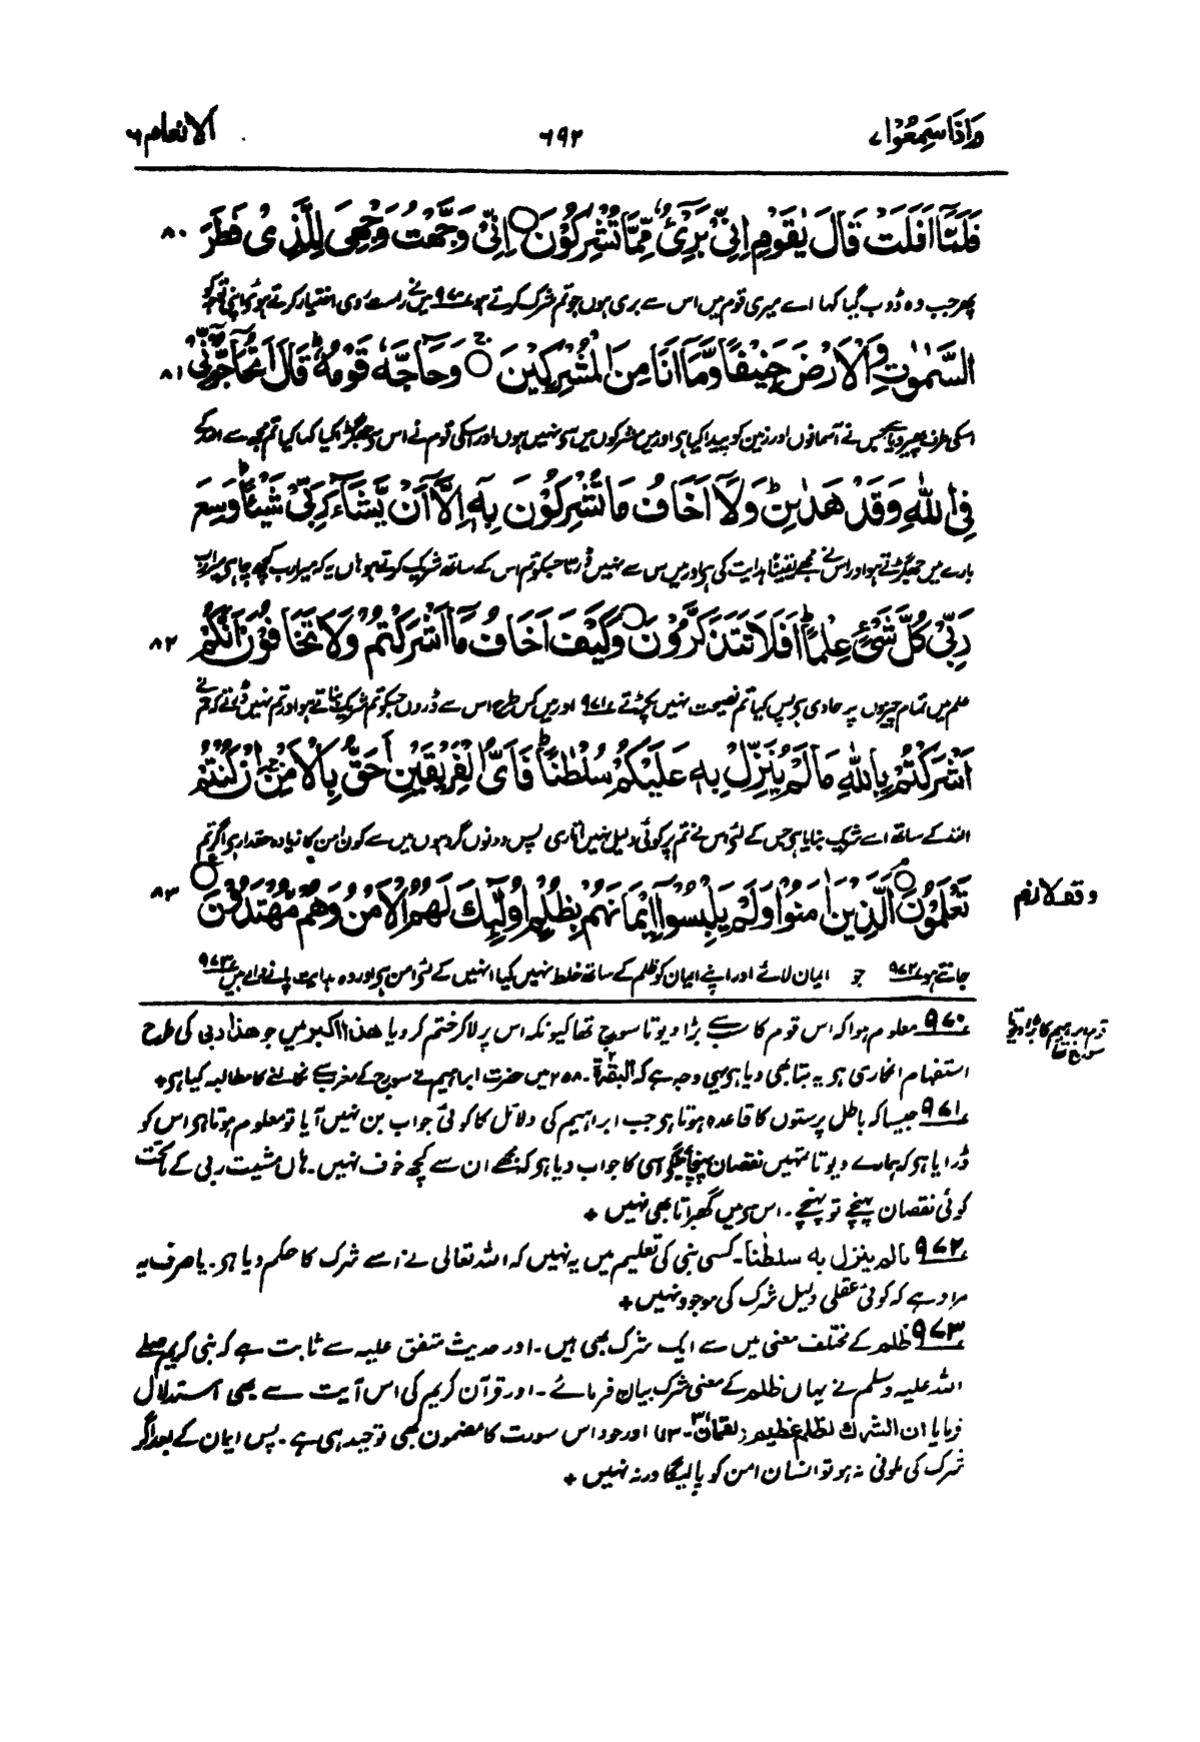 وَاِذَا سَمِعُوْا ٧ ٦٩٢ الانعام ٦
فَلَمَّآ اَفَلَتْ قَالَ يٰقَوْمِ اِنِّىْ بَرِىْٓءٌ مِّمَّا تُشْرِكُوْنَ ○ اِنِّىْ وَجَّهْتُ وَجْهِىَ لِلَّذِىْ فَطَرَ ٨٠
پھر جب وہ ڈوب گیا کہا اے میری قوم میں اس سے بری ہوں جو تم شرک کرتے ہو ۹۷۰ میں نے راست روی اختیار کرتے ہوئے اپنی توجہ کو
السَّمٰوٰتِ وَالْاَرْضَ حَنِيْفًا وَّمَآ اَنَا مِنَ الْمُشْرِكِيْنَ ○ وَحَآجَّهٗ قَوْمُهٗ ؕ قَالَ اَتُحَآجُّوْٓنِّىْ ٨١
اسکی طرف پھیر دیا جس نے آسمانوں اور زمین کو پیدا کیا ہی اور میں مشرکوں میں سے نہیں ہوں اور اسکی قوم نے اس سے جھگڑا کیا کہا کیا تم مجھ سے اللہ کے
فِى اللّٰهِ وَقَدْ هَدٰىنِ ؕ وَلَآ اَخَافُ مَا تُشْرِكُوْنَ بِهٖٓ اِلَّآ اَنْ يَّشَآءَ رَبِّىْ شَيْئًا ؕ وَسِعَ
بارے میں جھگڑتے ہو اور اس نے مجھے یقیناً ہدایت کی ہی اور میں اس سے نہیں ڈرتا جسکو تم اس کے ساتھ شریک کرتے ہو ہاں یہ کہ میرا رب کچھ چاہی میرا رب
رَبِّىْ كُلَّ شَىْءٍ عِلْمًا ؕ اَفَلَا تَتَذَكَّرُوْنَ ○ وَكَيْفَ اَخَافُ مَآ اَشْرَكْتُمْ وَلَا تَخَافُوْنَ اَنَّكُمْ ٨٢
علم میں تمام چیزوں پر حاوی ہی پس کیا تم نصیحت نہیں پکڑتے ۹۷۱ اور میں کس طرح اس سے ڈروں جسکو تم شریک بناتے ہو اور تم نہیں ڈرتے کہ تم نے
اَشْرَكْتُمْ بِاللّٰهِ مَا لَمْ يُنَزِّلْ بِهٖ عَلَيْكُمْ سُلْطٰنًا ؕ فَاَىُّ الْفَرِيْقَيْنِ اَحَقُّ بِالْاَمْنِ ۚ اِنْ كُنْتُمْ
اللہ کے ساتھ اسے شریک بنایا ہی جس کے لئے اس نے تم پر کوئی دلیل نہیں اتاری پس دونوں گروہوں میں سے کون امن کا زیادہ حقدار ہی اگر تم
تَعْلَمُوْنَ ○ اَلَّذِيْنَ اٰمَنُوْا وَلَمْ يَلْبِسُوْٓا اِيْمَانَهُمْ بِظُلْمٍ اُولٰٓئِكَ لَهُمُ الْاَمْنُ وَهُمْ مُّهْتَدُوْنَ ○ ٨٣
وقف لازم
جانتے ہو ۹۷۲ جو ایمان لائے اور اپنے ایمان کو ظلم کے ساتھ خلط نہیں کیا انہیں کے لئے امن ہی اور وہ ہدایت پانے والے ہیں ۹۷۳
۹۷۰ معلوم ہوا کہ اس قوم کا سب سے بڑا دیوتا سورج تھا کیونکہ اس پر لا کر ختم کر دیا ھذا اکبر میں جو ھذا ربی کی طرح
قوم ابراہیم کا بڑا دیوتا سورج تھا
استفہام انکاری ہو یہ بتا بھی دیا ہی یہی وجہ ہے کہ البقرۃ ۲۔ ۲۵۸ میں حضرت ابراہیم نے سورج کے مغرب سے نکالنے کا مطالبہ کیا ہی +
۹۷۱ جیسا کہ باطل پرستوں کا قاعدہ ہوتا ہو جب ابراہیم کی دلائل کا کوئی جواب بن نہیں آیا تو معلوم ہوتا ہی اس کو
ڈرایا ہو کہ ہمارے دیوتا تمہیں نقصان پہنچائیںگے اسی کا جواب دیا ہو کہ مجھے ان سے کچھ خوف نہیں۔ ہاں مشیت ربی کے ماتحت
کوئی نقصان پہنچے تو پہنچے۔ اس سے میں گھبراتا بھی نہیں +
۹۷۲ مالم ینزل بہ سلطٰنا۔ کسی نبی کی تعلیم میں یہ نہیں کہ اللہ تعالی نے اسے شرک کا حکم دیا ہو۔ یا صرف یہ
مراد ہے کہ کوئی عقلی دلیل شرک کی موجود نہیں +
۹۷۳ ظلم کے مختلف معنی میں سے ایک شرک بھی ہیں۔ اور حدیث متفق علیہ سے ثابت ہے کہ نبی کریم صلے
اللہ علیہ وسلم نے یہاں ظلم کے معنی شرک بیان فرمائے۔ اور قرآن کریم کی اس آیت سے بھی استدلال
فرمایا ان الشرک لظلم عظیم (لقمان ۳۱۔ ۱۳) اور خود اس سورت کا مضمون بھی توحید ہی ہے۔ پس ایمان کے بعد اگر
شرک کی ملونی نہ ہو تو انسان امن کو پا لیگا ورنہ نہیں +